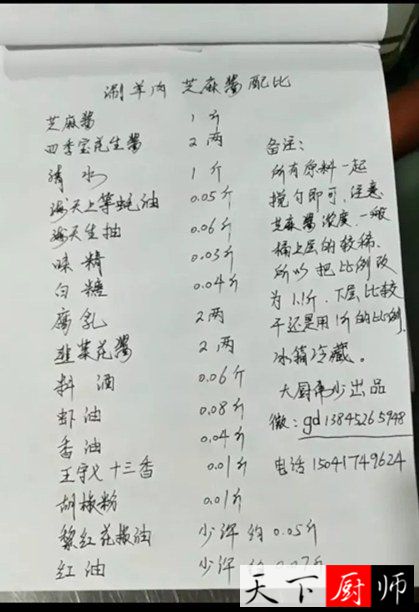 涮羊肉 芝麻酱配比
芝麻酱 1斤
四季宝花生酱 2两
清水 1斤
海天上等蚝油 0.05斤
海天生抽 0.06斤
味精 0.03斤
白糖 0.04斤
腐乳 2两
韭菜花酱 2两
料酒 0.06斤
虾油 0.08斤
香油 0.04斤
王守义十三香 0.01斤
胡椒粉 0.01斤
黎红花椒油 少许 约0.05斤
红油 少许
备注:
所有原料一起
搅匀即可,注意
芝麻酱浓度,一般
桶上层的较稀,
所以把比例改
为1.1斤,下层比较
干还是用1斤的比例,
冰箱冷藏。
大厨 出品
微:gd13845265948
电话15041749624
天下厨师